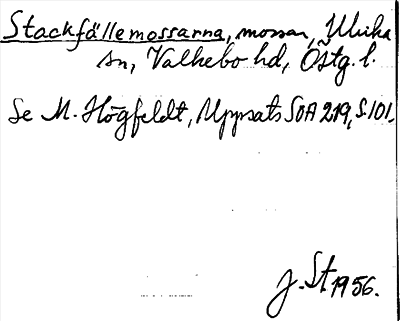 Stackfällemossarna, mossar, Ulrika
sn, Valkebo hd, Östg. l.
Se M. Högfeldt, Uppsats SOA 219, s. 101.
J. St 1956.